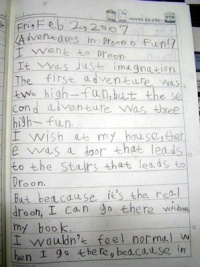 Fri, Feb 2, 2007
(Adventures in Droon is Fun!)
I went to Droon.
It was just imagnation
The first adventure was
two high-fun, but the se
cond adventure was three
high-fun.
I wish at my house, ther
e was a door that leads
to the stairs that leads to
Droon.
But beacause it's the real
droon, I can go there without
my book.
I wouldn't feel normal w
hen I go there, beacause in